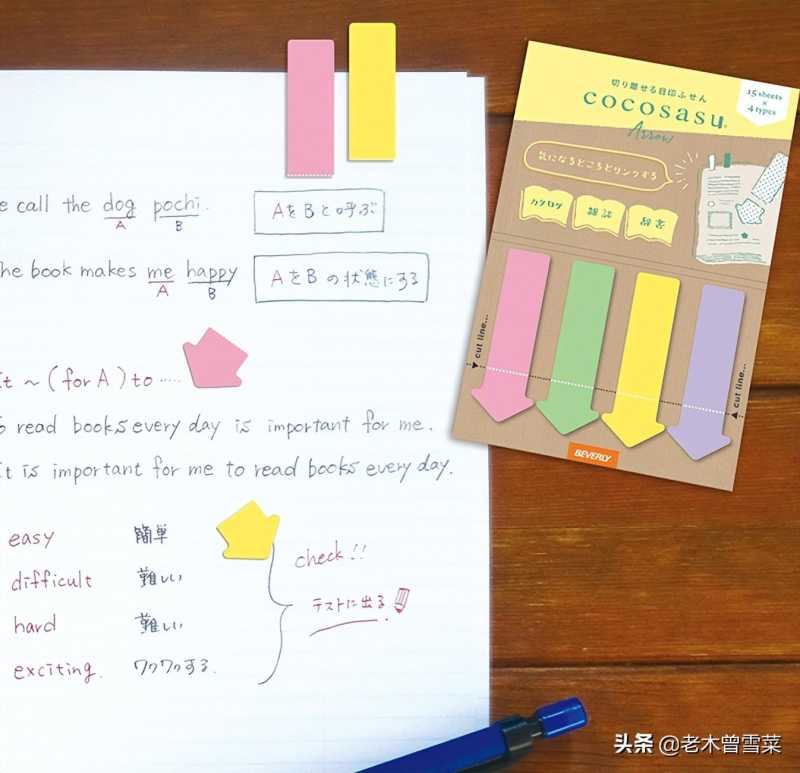 e call the dog pochi.
A B
AをBと呼ぶ
he book makes me happy
A B
AをBの状態にする
It ~ (for A) to .....
o read books every day is important for me.
It is important for me to read books every day.
easy 簡単
difficult 難しい
hard 難しい
exciting. ワクワクする.
check!!
テストに出る
切り離せる目印ふせん
cocosasu®
Arrow
15 sheets
×
4 types
気になるところとリンクする
カタログ
雑誌
辞書
cut line...
cut line...
BEVERLY
头条 @老木曾雪菜